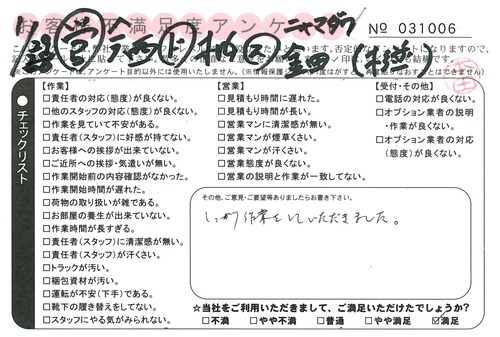 お客様不満足度アンケ
No 031006
チェックリスト
【作業】
□責任者の対応(態度)が良くない。
□他のスタッフの対応(態度)が良くない。
□作業を見ていて不安がある。
□責任者(スタッフ)に好感が持てない。
□お客様への挨拶が出来ていない。
□ご近所への挨拶・気遣いが無い。
□作業開始前の内容確認がなかった。
□作業開始時間が遅れた。
□荷物の取り扱いが雑である。
□お部屋の養生が出来ていない。
□作業時間が長すぎる。
□責任者(スタッフ)に清潔感が無い。
□責任者(スタッフ)が汗くさい。
□トラックが汚い。
□梱包資材が汚い。
□運転が不安(下手)である。
□靴下の履き替えをしてない。
□スタッフにやる気がみられない。
【営業】
□見積もり時間に遅れた。
□見積もり時間が長い。
□営業マンに清潔感が無い。
□営業マンが煙草くさい。
□営業マンが汗くさい。
□営業態度が良くない。
□営業の説明と作業が一致してない。
【受付・その他】
□電話の対応が良くない。
□オプション業者の説明
・作業が良くない。
□オプション業者の対応
(態度)が良くない。
その他、ご意見・ご要望等ありましたらお書き下さい。
しっかり作業をしていただきました。
☆当社をご利用いただきまして、ご満足いただけたでしょうか?
□不満 □やや不満 □普通 □やや満足 ☑満足